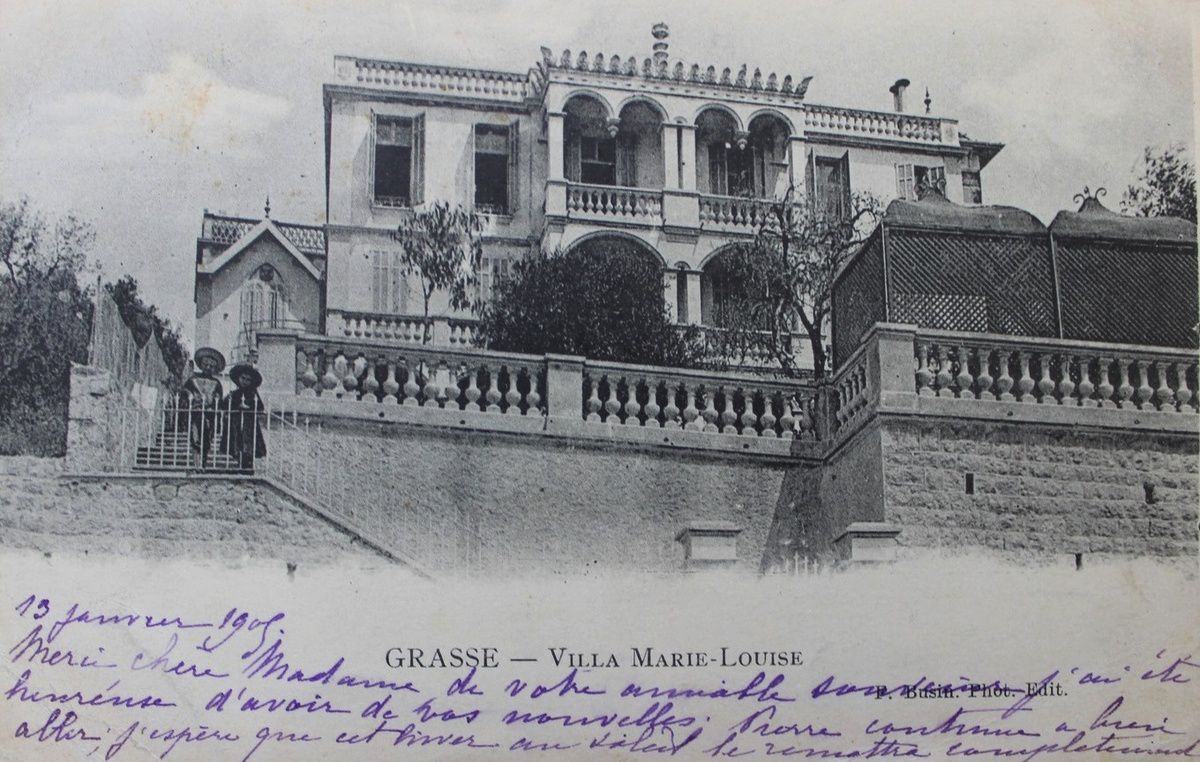 13 janvier 1905.
GRASSE — VILLA MARIE-LOUISE
Merci chère Madame de votre aimable souvenir j'ai été
F. Busin Phot. Edit.
heureuse d'avoir de vos nouvelles. Pierre continue a bien
aller; j'espère que cet hiver au soleil le remettra complètement